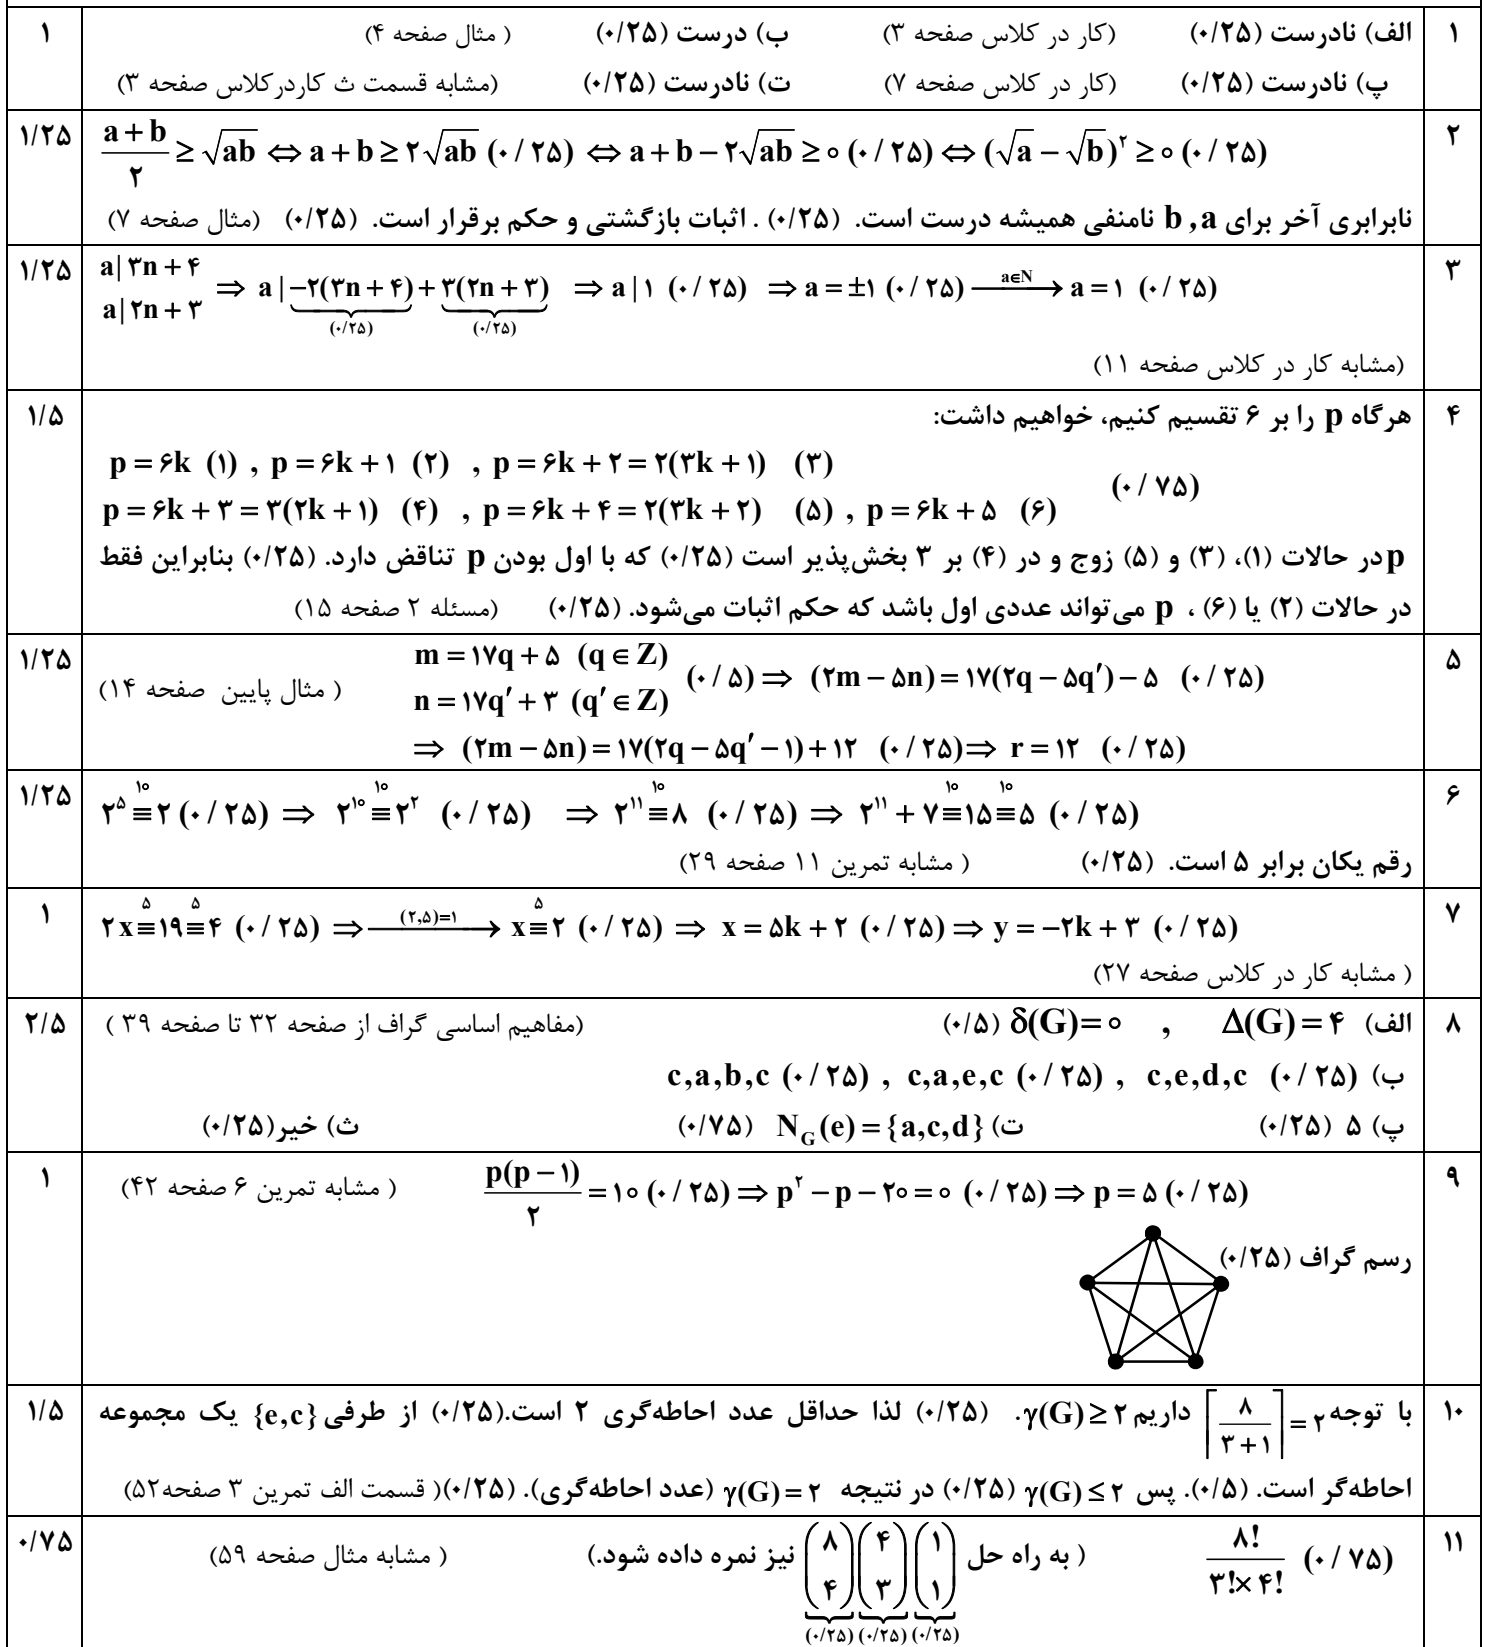 ۱ الف) نادرست (۰/۲۵) (کار در کلاس صفحه ۳) ب) درست (۰/۲۵) ( مثال صفحه ۴) ۱
پ) نادرست (۰/۲۵) (کار در کلاس صفحه ۷) ت) نادرست (۰/۲۵) (مشابه قسمت ث کاردرکلاس صفحه ۳)
۲ (a+b)/۲ ≥ √ab ⇔ a+b ≥ ۲√ab (۰/۲۵) ⇔ a+b−۲√ab ≥ ۰ (۰/۲۵) ⇔ (√a − √b)² ≥ ۰ (۰/۲۵) ۱/۲۵
نابرابری آخر برای b , a نامنفی همیشه درست است. (۰/۲۵) . اثبات بازگشتی و حکم برقرار است. (۰/۲۵) (مثال صفحه ۷)
۳ a|۳n+۴ , a|۲n+۳ ⇒ a|−۲(۳n+۴) (۰/۲۵) + ۳(۲n+۳) (۰/۲۵) ⇒ a|۱ (۰/۲۵) ⇒ a=±۱ (۰/۲۵) —a∈N→ a=۱ (۰/۲۵) ۱/۲۵
(مشابه کار در کلاس صفحه ۱۱)
۴ هرگاه p را بر ۶ تقسیم کنیم، خواهیم داشت: ۱/۵
p=۶k (۱) , p=۶k+۱ (۲) , p=۶k+۲=۲(۳k+۱) (۳)
p=۶k+۳=۳(۲k+۱) (۴) , p=۶k+۴=۲(۳k+۲) (۵) , p=۶k+۵ (۶) (۰/۷۵)
p در حالات (۱)، (۳) و (۵) زوج و در (۴) بر ۳ بخش‌پذیر است (۰/۲۵) که با اول بودن p تناقض دارد. (۰/۲۵) بنابراین فقط
در حالات (۲) یا (۶) ، p می‌تواند عددی اول باشد که حکم اثبات می‌شود. (۰/۲۵) (مسئله ۲ صفحه ۱۵)
۵ m=۱۷q+۵ (q∈Z) ۱/۲۵
n=۱۷q′+۳ (q′∈Z) (۰/۵) ⇒ (۲m−۵n)=۱۷(۲q−۵q′)−۵ (۰/۲۵) ( مثال پایین صفحه ۱۴)
⇒ (۲m−۵n)=۱۷(۲q−۵q′−۱)+۱۲ (۰/۲۵) ⇒ r=۱۲ (۰/۲۵)
۶ ۲^۵ ≡^۱۰ ۲ (۰/۲۵) ⇒ ۲^۱۰ ≡^۱۰ ۲^۲ (۰/۲۵) ⇒ ۲^۱۱ ≡^۱۰ ۸ (۰/۲۵) ⇒ ۲^۱۱+۷ ≡^۱۰ ۱۵ ≡^۱۰ ۵ (۰/۲۵) ۱/۲۵
رقم یکان برابر ۵ است. (۰/۲۵) ( مشابه تمرین ۱۱ صفحه ۲۹)
۷ ۲x ≡^۵ ۱۹ ≡^۵ ۴ (۰/۲۵) ⇒ —(۲,۵)=۱→ x ≡^۵ ۲ (۰/۲۵) ⇒ x=۵k+۲ (۰/۲۵) ⇒ y=−۲k+۳ (۰/۲۵) ۱
( مشابه کار در کلاس صفحه ۲۷)
۸ الف) Δ(G)=۴ , δ(G)=۰ (۰/۵) (مفاهیم اساسی گراف از صفحه ۳۲ تا صفحه ۳۹ ) ۲/۵
ب) c,a,b,c (۰/۲۵) , c,a,e,c (۰/۲۵) , c,e,d,c (۰/۲۵)
پ) ۵ (۰/۲۵) ت) N_G(e)={a,c,d} (۰/۷۵) ث) خیر(۰/۲۵)
۹ p(p−۱)/۲=۱۰ (۰/۲۵) ⇒ p²−p−۲۰=۰ (۰/۲۵) ⇒ p=۵ (۰/۲۵) ( مشابه تمرین ۶ صفحه ۴۲) ۱
رسم گراف (۰/۲۵)
۱۰ با توجه ⌈۸/(۳+۱)⌉=۲ داریم γ(G)≥۲. (۰/۲۵) لذا حداقل عدد احاطه‌گری ۲ است.(۰/۲۵) از طرفی {e,c} یک مجموعه ۱/۵
احاطه‌گر است. (۰/۵). پس γ(G)≤۲ (۰/۲۵) در نتیجه γ(G)=۲ (عدد احاطه‌گری). (۰/۲۵)( قسمت الف تمرین ۳ صفحه۵۲)
۱۱ ۸!/(۳!×۴!) (۰/۷۵) ( به راه حل (۸ ۴) (۰/۲۵) (۴ ۳) (۰/۲۵) (۱ ۱) (۰/۲۵) نیز نمره داده شود.) ( مشابه مثال صفحه ۵۹) ۰/۷۵